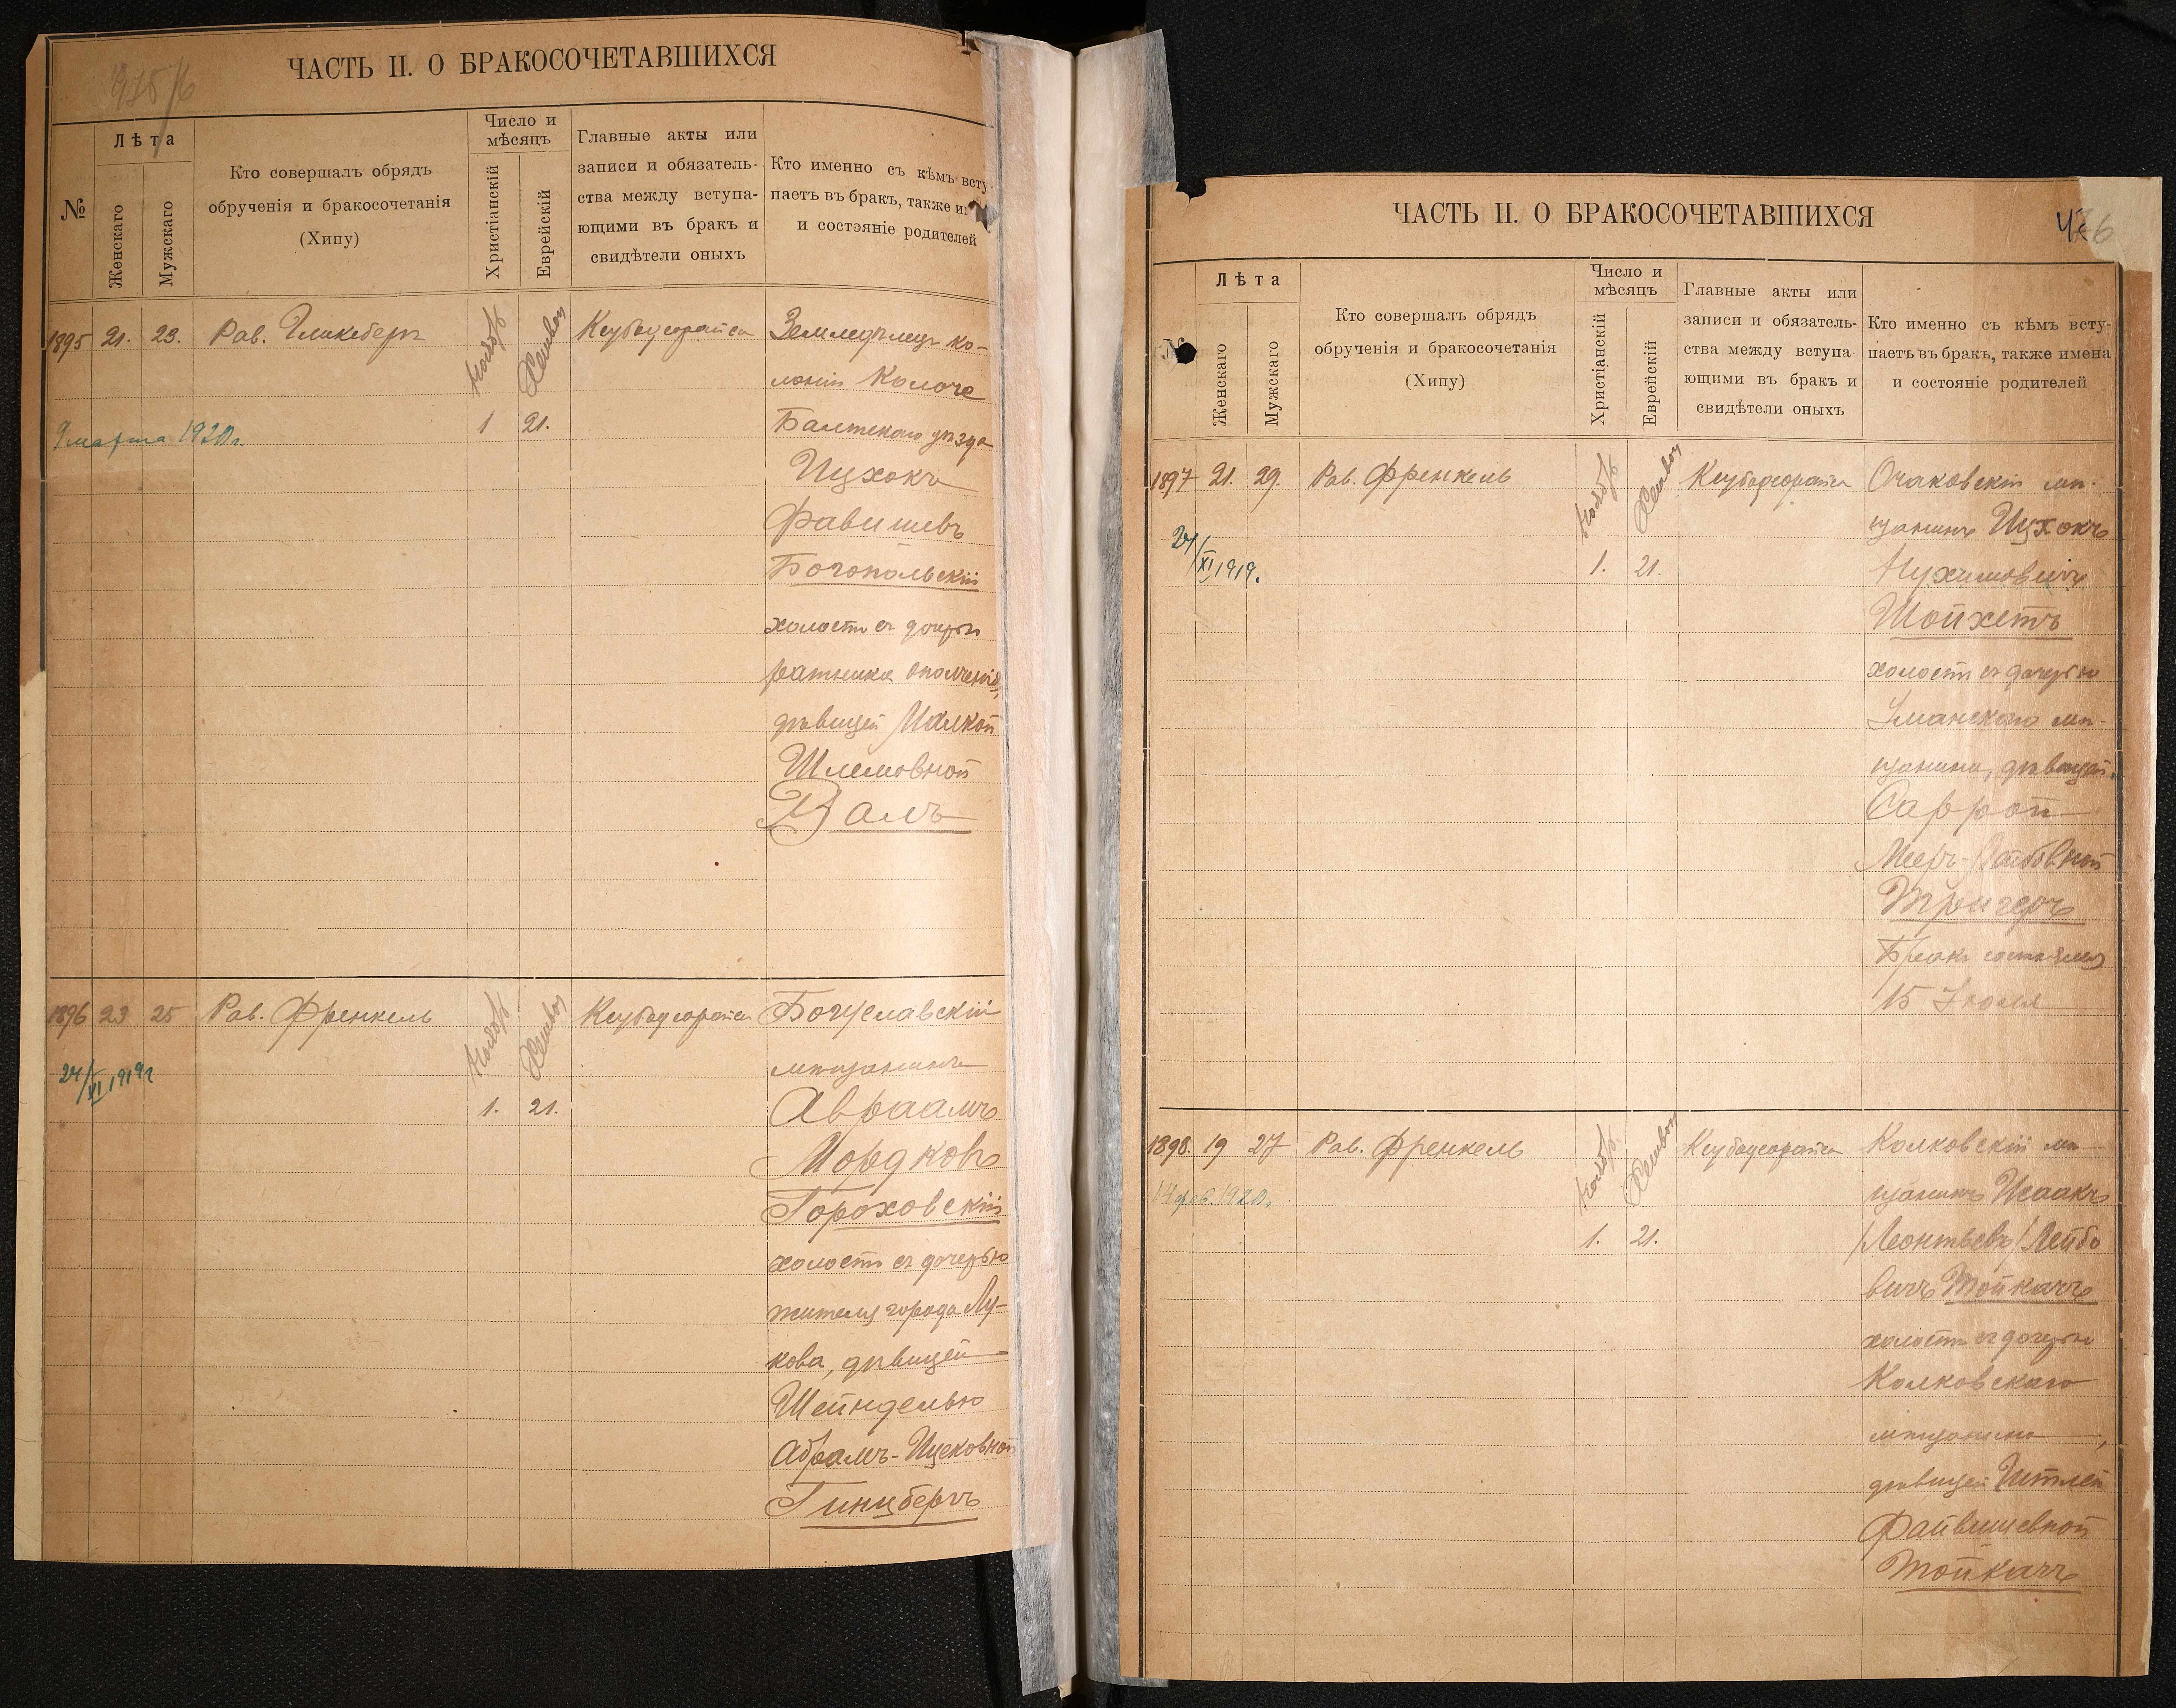 ЧАСТЬ II. О БРАКОСОЧЕТАВШИХСЯ
№
Лѣта
Женскаго
Мужскаго
Кто совершалъ обрядъ
обрученія и бракосочетанія
(Хипу)
Число и
мѣсяцъ
Христіанскій
Еврейскій
Главные акты или
записи и обязатель-
ства между вступа-
ющими въ бракъ и
свидѣтели оныхъ
Кто именно съ кѣмъ всту
паетъ въ бракъ, также и
и состояніе родителей
1895 21. 23. Рав. Гликсбергъ
Ноябрь Хешвон
1 21.
9 марта 1920 г.
Земледѣлецъ ко-
лоніи
Балтскаго уѣзда
Ицхокъ
Фавишевъ
Богопольскій
холостъ съ дочерью
ратника ополченія,
дѣвицей Малкой
Шлемовной
Валъ
1896 23 25 Рав. Френкель
Ноябрь Хешвон
1. 21.
24/XI 1919 г
Богуславскій
мѣщанинъ
Авраамъ
Мордковъ
Гороховскій
холостъ съ дочерью
жителя города Лу-
кова, дѣвицей
Шейнделью
Абрамъ-Ицковной
Гинцбергъ
ЧАСТЬ II. О БРАКОСОЧЕТАВШИХСЯ
№
Лѣта
Женскаго
Мужскаго
Кто совершалъ обрядъ
обрученія и бракосочетанія
(Хипу)
Число и
мѣсяцъ
Христіанскій
Еврейскій
Главные акты или
записи и обязатель-
ства между вступа-
ющими въ бракъ и
свидѣтели оныхъ
Кто именно съ кѣмъ всту-
паетъ въ бракъ, также имена
и состояніе родителей
1897 21. 29. Рав. Френкель
Ноябрь Хешвон
1. 21.
24/XI 1919.
Очаковскій мѣ-
щанинъ Ицхокъ
Нухимовичъ
Шойхетъ
холостъ съ дочерью
Уманскаго мѣ-
щанина, дѣвицей
Саррой
Меръ-Лейбовной
Тригеръ
Бракъ состоялся
15 Іюля
1898. 19 27 Рав. Френкель
Ноябрь Хешвон
1. 21.
14 фев. 1920 г.
Колковскій мѣ-
щанинъ Исаакъ
Леонтьевъ/Лейбо
вичъ Тойкачъ
холостъ съ дочерью
Колковскаго
мѣщанина,
дѣвицей Итлей
Файвишевной
Тойкачъ